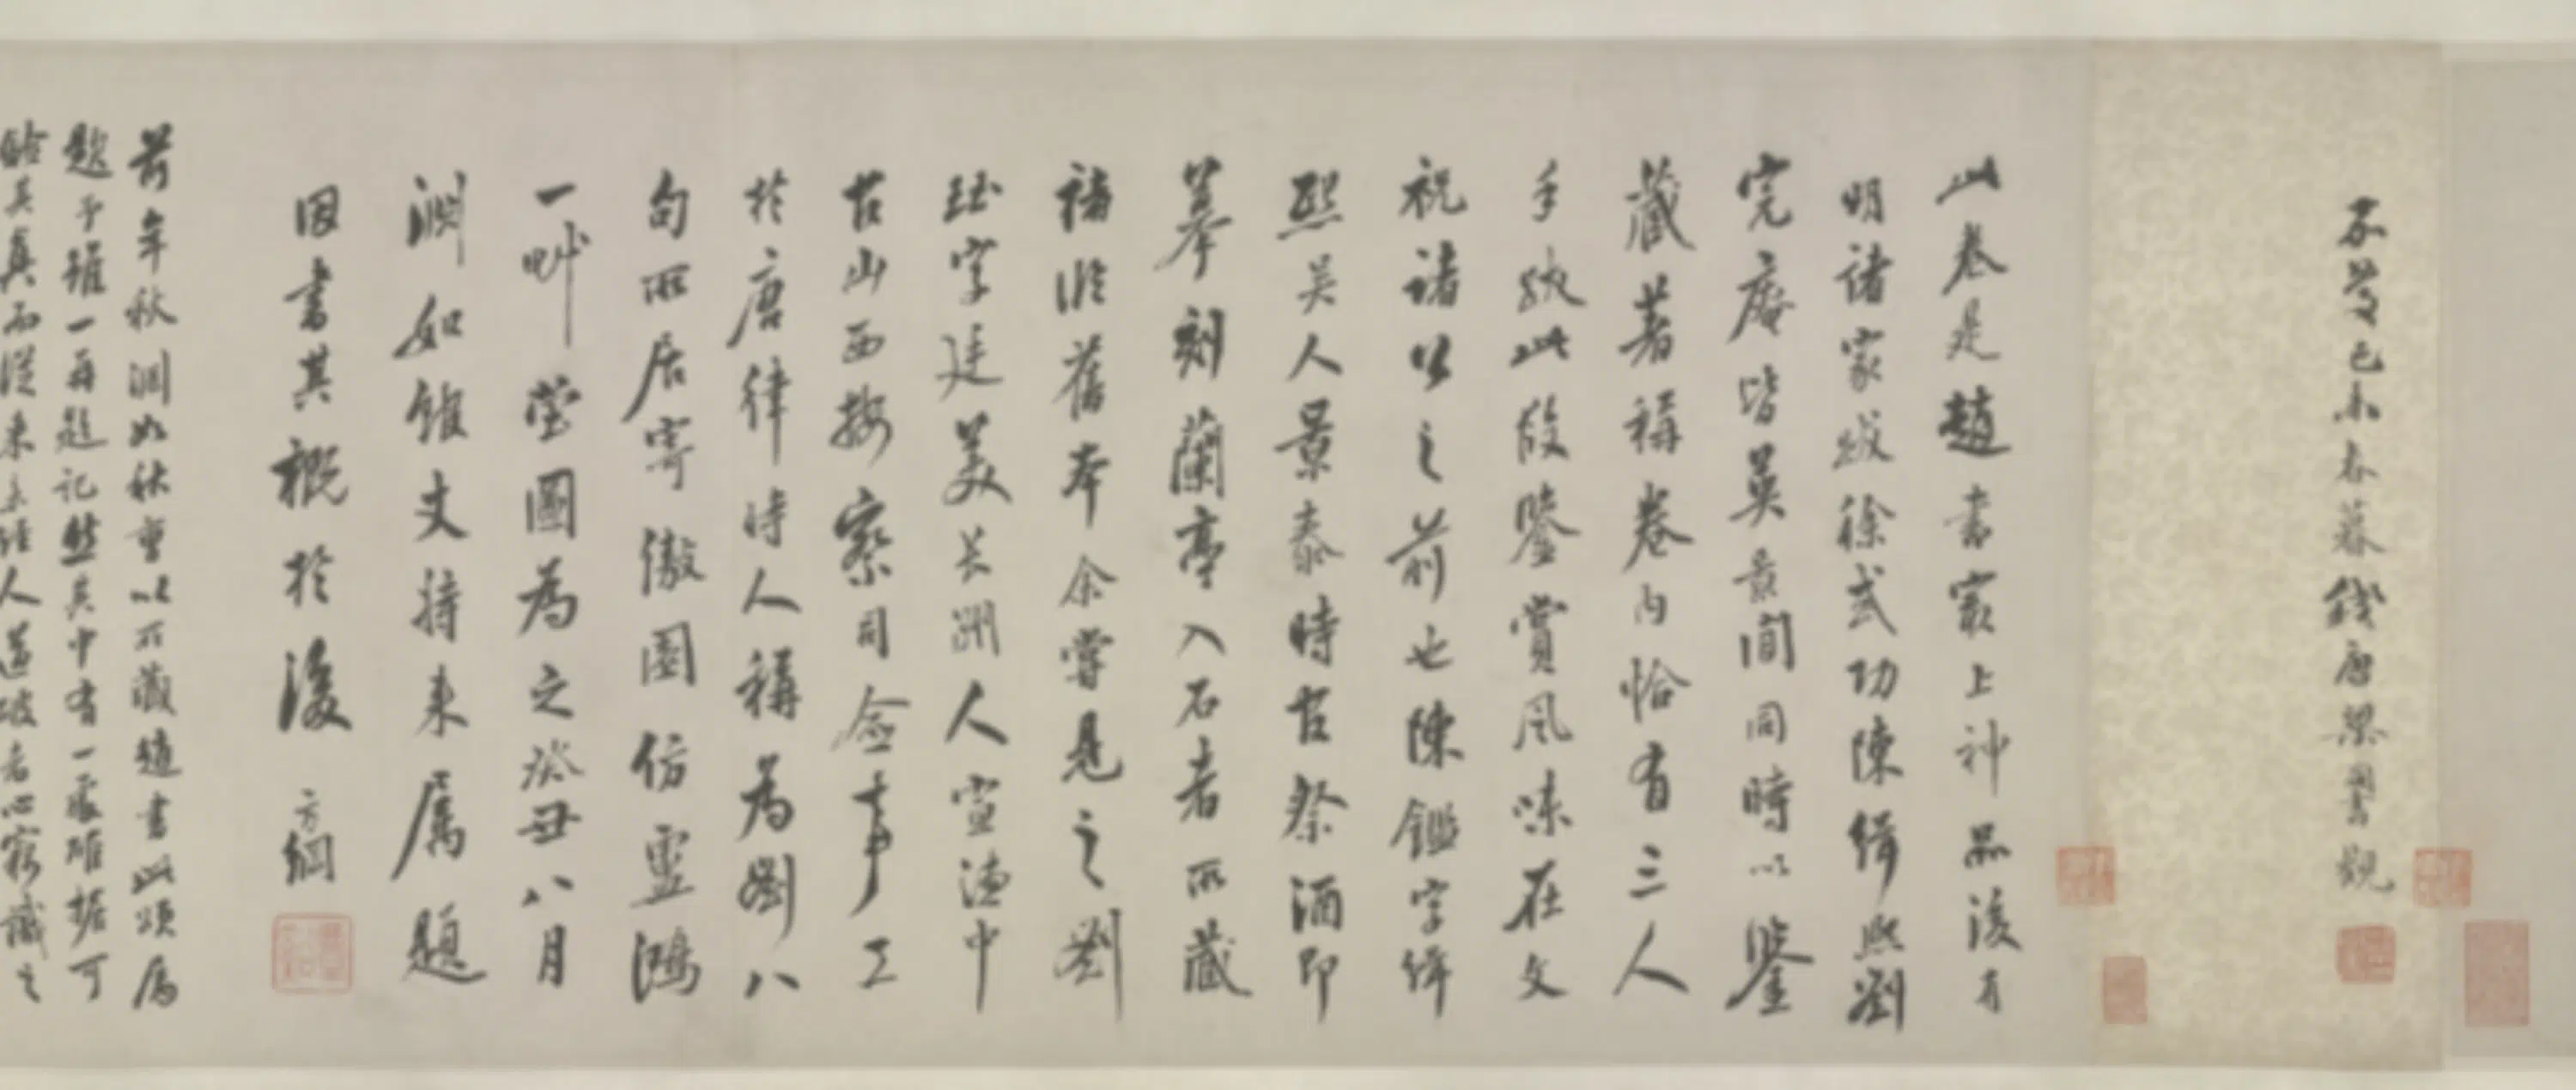 嘉慶己未春暮錢唐梁同書觀
此卷是趙書家上神品後有
明諸家跋徐武功陳緝熙劉
完庵皆英景間同時以鑒
藏著稱卷內恰有三人
手跋此段鑒賞風味在文
祝諸公之前也陳鑑字緝
熙吳人景泰時官祭酒即
摹刻蘭亭入石者所藏
褚臨舊本余嘗見之劉
珏字廷美長洲人宣德中
官山西按察司僉事工
於唐律時人稱為劉八
句所居寄傲園仿盧鴻
一草堂圖為之癸丑八月
淵如館丈持來屬題
因書其概於後 方綱
前年秋淵如秋曹以所藏趙書此頌屬
題予雖一再題記然其中有一處確据可